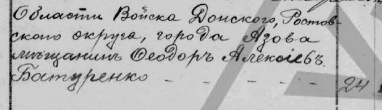 Области Войска Донского, Ростов-
скаго округа, города Азова
мѣщанинъ Ѳеодоръ Алексѣевъ
Батуренко - - - - 24